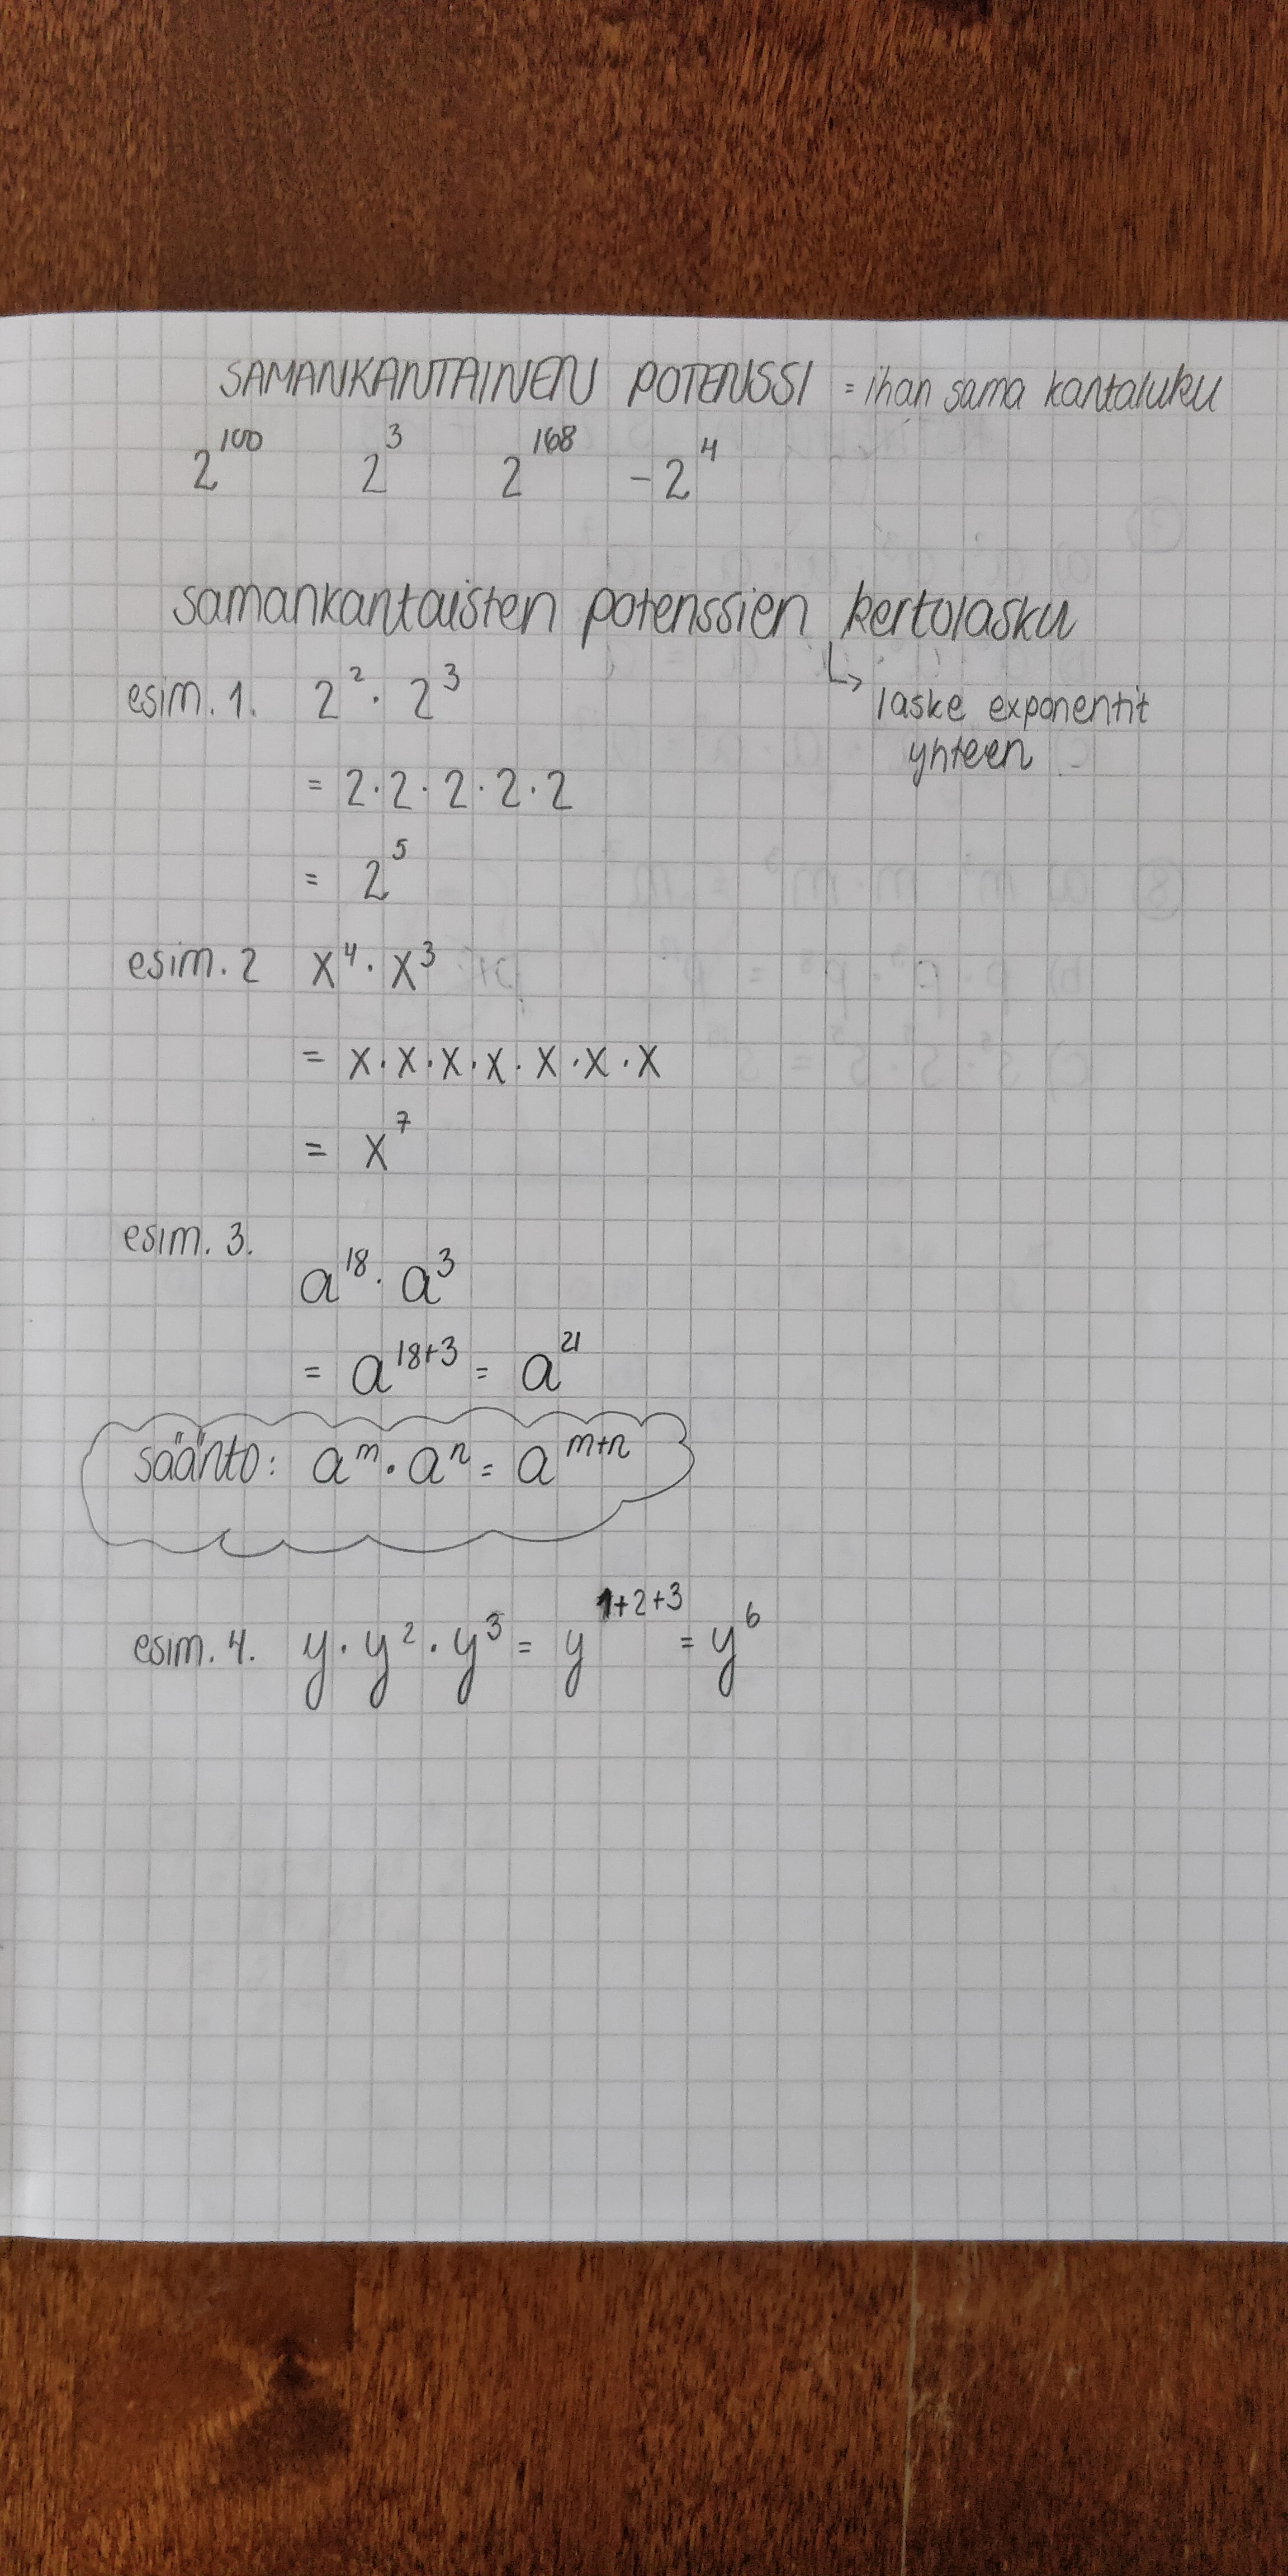 SAMANKANTAINEN POTENSSI = ihan sama kantaluku
2¹⁰⁰ 2³ 2¹⁶⁸ -2⁴
samankantaisten potenssien kertolasku
↳ laske exponentit
yhteen
esim. 1. 2² · 2³
= 2·2·2·2·2
= 2⁵
esim. 2 x⁴ · x³
= x·x·x·x·x·x·x
= x⁷
esim. 3.
a¹⁸ · a³
= a¹⁸⁺³ = a²¹
sääntö: aᵐ · aⁿ = aᵐ⁺ⁿ
esim. 4. y · y² · y³ = y¹⁺²⁺³ = y⁶